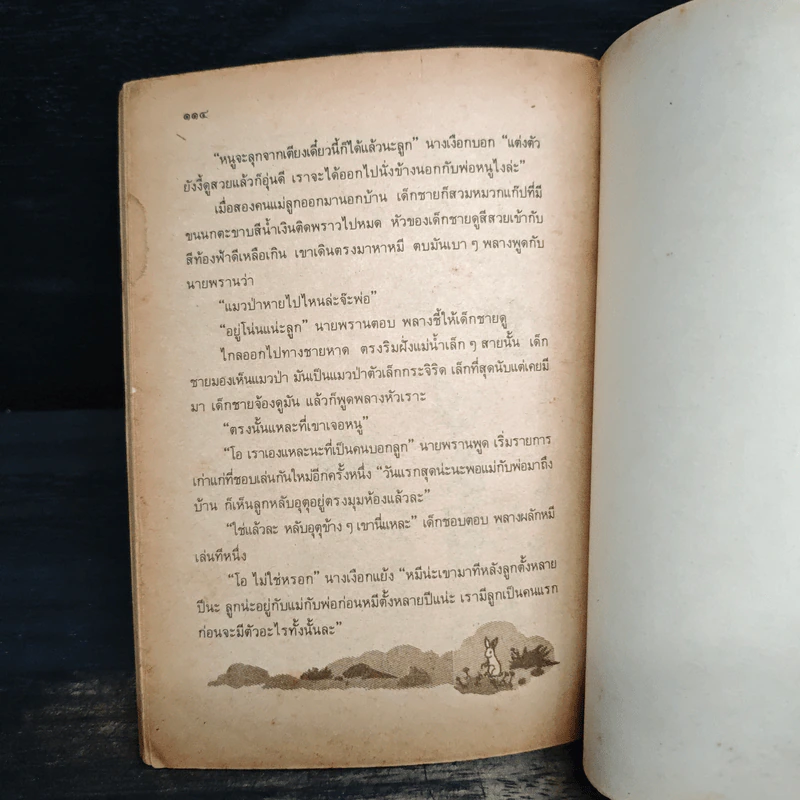 ๑๑๔
“หนูจะลุกจากเตียงเดี๋ยวนี้ก็ได้แล้วนะลูก” นางเงือกบอก “แต่งตัว
ยังงี้ดูสวยแล้วก็อุ่นดี เราจะได้ออกไปนั่งข้างนอกกับพ่อหนูไงล่ะ”
เมื่อสองคนแม่ลูกออกมานอกบ้าน เด็กชายก็สวมหมวกแก๊ปที่มี
ขนนกตะขาบสีน้ำเงินติดพราวไปหมด หัวของเด็กชายดูสีสวยเข้ากับ
สีท้องฟ้าดีเหลือเกิน เขาเดินตรงมาหาหมี ตบมันเบา ๆ พลางพูดกับ
นายพรานว่า
“แมวป่าหายไปไหนล่ะจ๊ะพ่อ”
“อยู่โน่นแน่ะลูก” นายพรานตอบ พลางชี้ให้เด็กชายดู
ไกลออกไปทางชายหาด ตรงริมฝั่งแม่น้ำเล็ก ๆ สายนั้น เด็ก
ชายมองเห็นแมวป่า มันเป็นแมวป่าตัวเล็กกระจิริด เล็กที่สุดนับแต่เคยมี
มา เด็กชายจ้องดูมัน แล้วก็พูดพลางหัวเราะ
“ตรงนั้นแหละที่เขาเจอหนู”
“โอ เราเองแหละนะที่เป็นคนบอกลูก” นายพรานพูด เริ่มรายการ
เก่าแก่ที่ชอบเล่นกันใหม่อีกครั้งหนึ่ง “วันแรกสุดน่ะนะพอแม่กับพ่อมาถึง
บ้าน ก็เห็นลูกหลับอุตุอยู่ตรงมุมห้องแล้วละ”
“ใช่แล้วละ หลับอุตุข้าง ๆ เขานี่แหละ” เด็กชอบตอบ พลางผลักหมี
เล่นทีหนึ่ง
“โอ ไม่ใช่หรอก” นางเงือกแย้ง “หมีน่ะเขามาทีหลังลูกตั้งหลาย
ปีนะ ลูกน่ะอยู่กับแม่กับพ่อก่อนหมีตั้งหลายปีแน่ะ เรามีลูกเป็นคนแรก
ก่อนจะมีตัวอะไรทั้งนั้นละ”